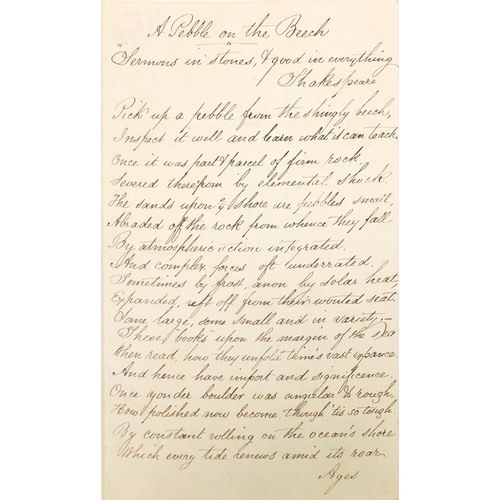 A Pebble on the Beech
"Sermons in stones, & good in everything
Shakespeare
Pick up a pebble from the shingly beech,
Inspect it well and learn what it can teach.
Once it was part & parcel of firm rock,
Severed therefrom by elemental shock.
The sands upon ye shore are pebbles small,
Abraded off the rock from whence they fall
By atmospheric action integrated,
And complex forces oft underrated,
Sometimes by frost, anon by solar heat,
Expanded, reft off from their wonted seat.
Some large, some small and in variety,—
These "books" upon the margin of the sea
then read how they unfold time's vast expance.
And hence have import and significence.
Once yonder boulder was angular & rough,
How polished now become, though 'tis so tough.
By constant rolling on the ocean's shore
Which every tide renews amid its roar
Ages